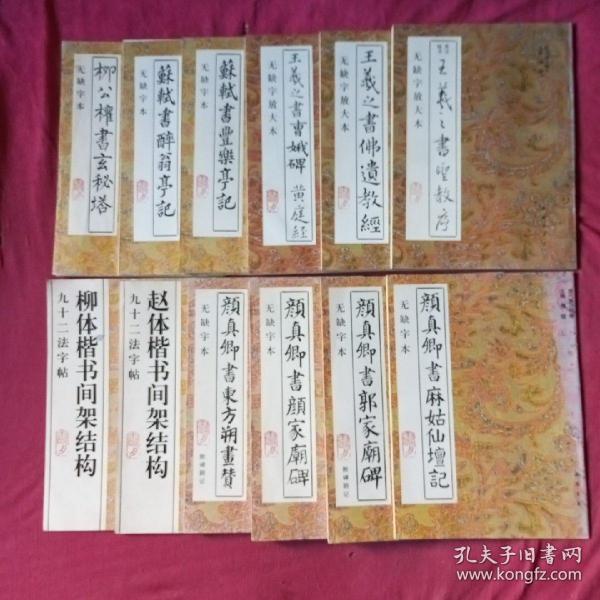 柳公權書玄秘塔
无缺字本
蘇軾書醉翁亭記
无缺字本
蘇軾書豐樂亭記
无缺字本
王羲之書曹娥碑 黄庭經
无缺字放大本
王羲之書佛遺教經
无缺字放大本
王羲之書聖教序
无缺字放大本
柳体楷书间架结构
九十二法字帖
赵体楷书间架结构
九十二法字帖
顔真卿書東方朔畫贊
无缺字本
附碑阴记
顔真卿書顔家廟碑
无缺字本
顔真卿書郭家廟碑
无缺字本
附碑阴记
顔真卿書麻姑仙壇記
无缺字本
孔夫子旧书网
www.kongfz.com